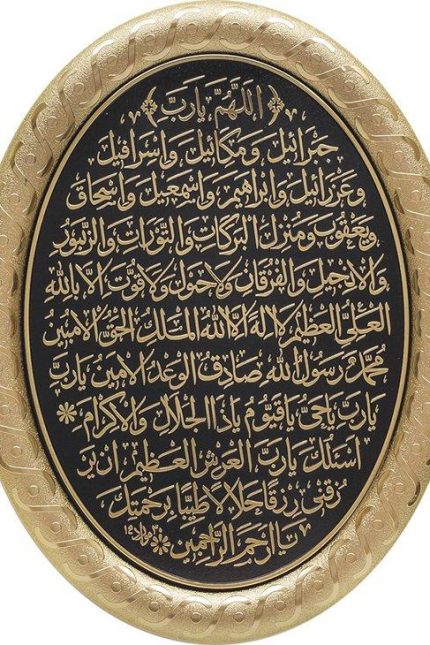 ﴿ اَللّٰهُمَّ يَارَبَّ ﴾
جَبْرَائِيلَ وَمِيكَائِيلَ وَاِسْرَافِيلَ
وَعَزْرَائِيلَ وَاِبْرَاهِيمَ وَاِسْمٰعِيلَ وَاِسْحَاقَ
وَيَعْقُوبَ وَمُنْزِلَ الْبَرَكَاتِ وَالتَّوْرَاتِ وَالزَّبُورِ
وَالْاِنْجِيلِ وَالْفُرْقَانِ وَلَاحَوْلَ وَلَاقُوَّتَ اِلَّا بِاللّٰهِ
الْعَلِيِّ الْعَظِيمِ لَا اِلٰهَ اِلَّا اللّٰهُ الْمَلِكُ الْحَقُّ الْمُبِينُ
مُحَمَّدٌ رَسُولُ اللّٰهِ صَادِقُ الْوَعْدِ الْاَمِينُ يَارَبِّ
يَارَبِّ يَاحَيُّ يَاقَيُّومُ يَاذَا الْجَلَالِ وَالْاِكْرَامِ *
اَسْئَلُكَ يَارَبَّ الْعَرْشِ الْعَظِيمِ اَنْ يَرْ
زُقَنِي رِزْقًا حَلَالًا طَيِّبًا بِرَحْمَتِكَ
يَا اَرْحَمَ الرَّاحِمِينَ *